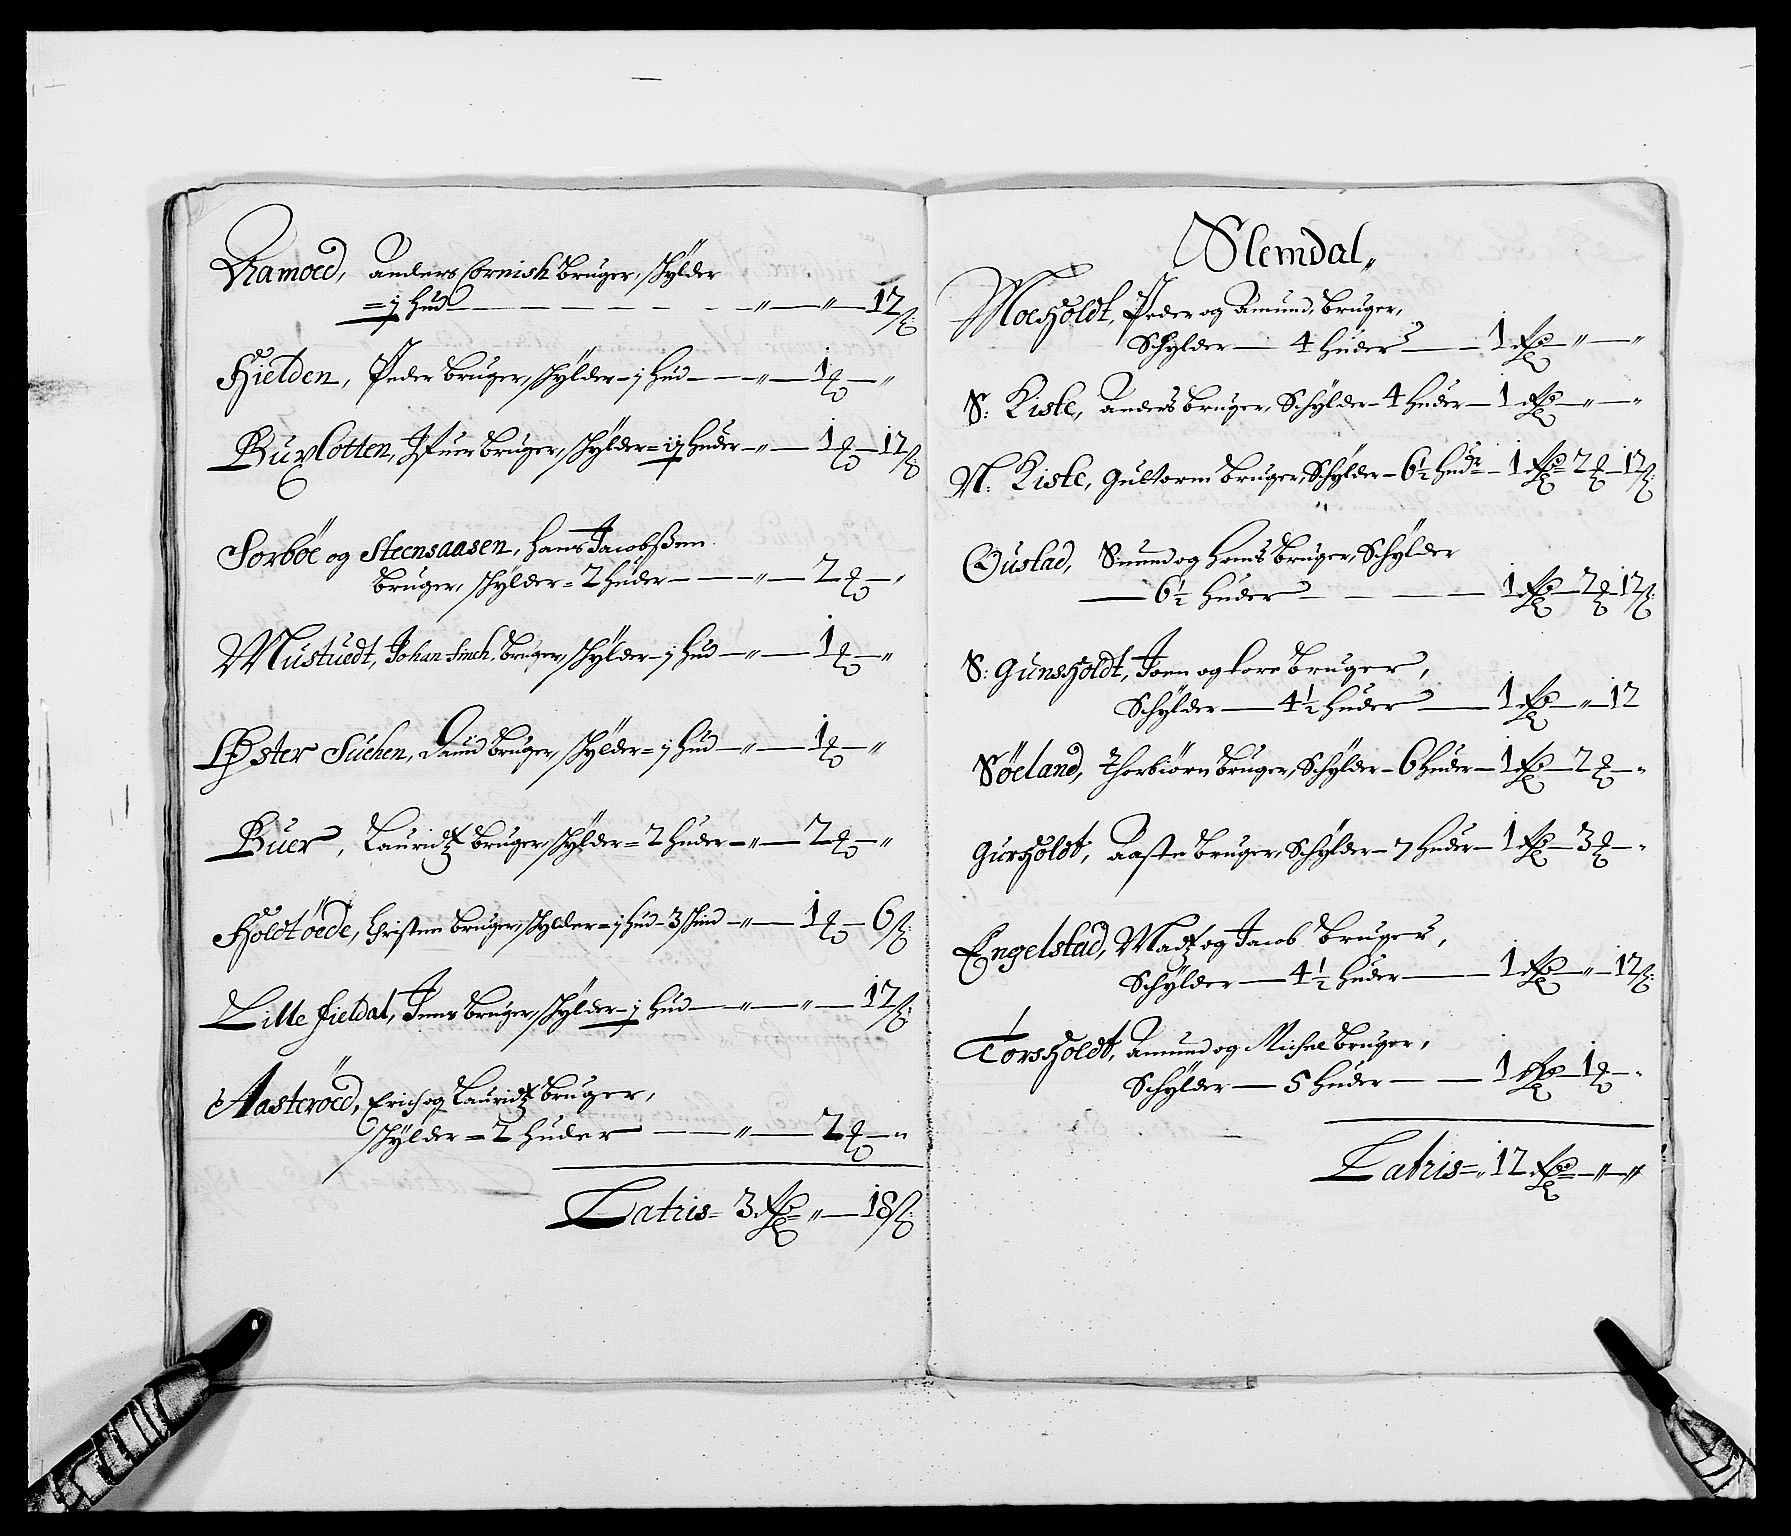 Ramoed, Anders Cornish Bruger, skylder
= ½ hud — — — — — — „ — „ — 12 ß:
Hielden, Peder bruger, skylder – j hud — — „ — 1 ₰ — „
Buxlotten, Ifuer bruger, skylder = 1½ huder – „ — 1 ₰ – 12 ß:
Sorböe og Steensaasen, hans Jacobsßen
Bruger, skylder = 2 huder — — „ — 2 ₰ — „
Mustuedt, Johan Finch, bruger, skylder – j hud — „ — 1 ₰ — „
Øster Suchen, Dauid bruger, skylder = j hud — „ — 1 ₰ — „
Buer, Lauridtz bruger, skylder = 2 huder – „ — 2 ₰ — „
Holdtöede, Christen bruger, skylder = j hud – 3 skind – „ — 1 ₰ – 6 ß:
Lille fieldal, Jens bruger, skylder – ½ hud — „ — „ — 12 ß:
Aasteröed, Erich og Lauridtz bruger,
skylder = 2 huder — — „ — 2 ₰ — „
Latris = 3 Rdr „ — 18 ß:
Slemdal„
Moeholdt, Peder og Amund, bruger,
Schylder — 4 huder — — 1 Rdr „ — „
S: Kiste, Anders bruger, Schylder – 4 huder – 1 Rdr – „ — „
N: Kiste, Gultorm bruger, Schylder – 6½ hudr – 1 Rdr 2 ₰ – 12 ß:
Oustad, Smund og hans bruger, Schylder
— 6½ huder — — — 1 Rdr – 2 ₰ – 12 ß:
S: Gunsholdt, Joen og Tore bruger,
Schylder — 4½ huder — 1 Rdr – „ – 12
Söeland, Thorbiörn bruger, Schylder – 6 huder – 1 Rdr – 2 ₰ – „
Gursholdt, Aaste bruger, Schylder – 7 huder – 1 Rdr – 3 ₰ – „
Engelstad, Madtz og Jacob bruger,
Schylder — 4½ huder — 1 Rdr „ – 12 ß:
Torsholdt, Amund og Michel bruger,
Schylder — 5 huder — — 1 Rdr – 1 ₰ – „
Latris = „ 12 Rdr – „ – „